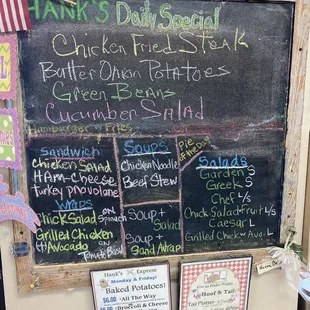 HANK'S Daily Special
Chicken Fried Steak
Butter Onion Potatoes
Green Beans
Cucumber Salad
Hamburger w Fries
Sandwich
Chicken Salad
Ham-Cheese
turkey provolone
Wraps
Chick Salad on Spinach
Grilled Chicken
Avocado on Tomato Basil
Soups
Chicken Noodle
Beef Stew
Soup +
Salad
Soup +
Sand/Wrap
Pie
of the Day
Salads
Garden S
Greek S
Chef L/S
Chick Salad Fruit L/S
Caesar L
Grilled Chick w Avo. L
Hank's Express
Monday & Friday!
Baked Potatoes!
$6.00 - All The Way
Broccoli & Cheese
Hoof & Tail